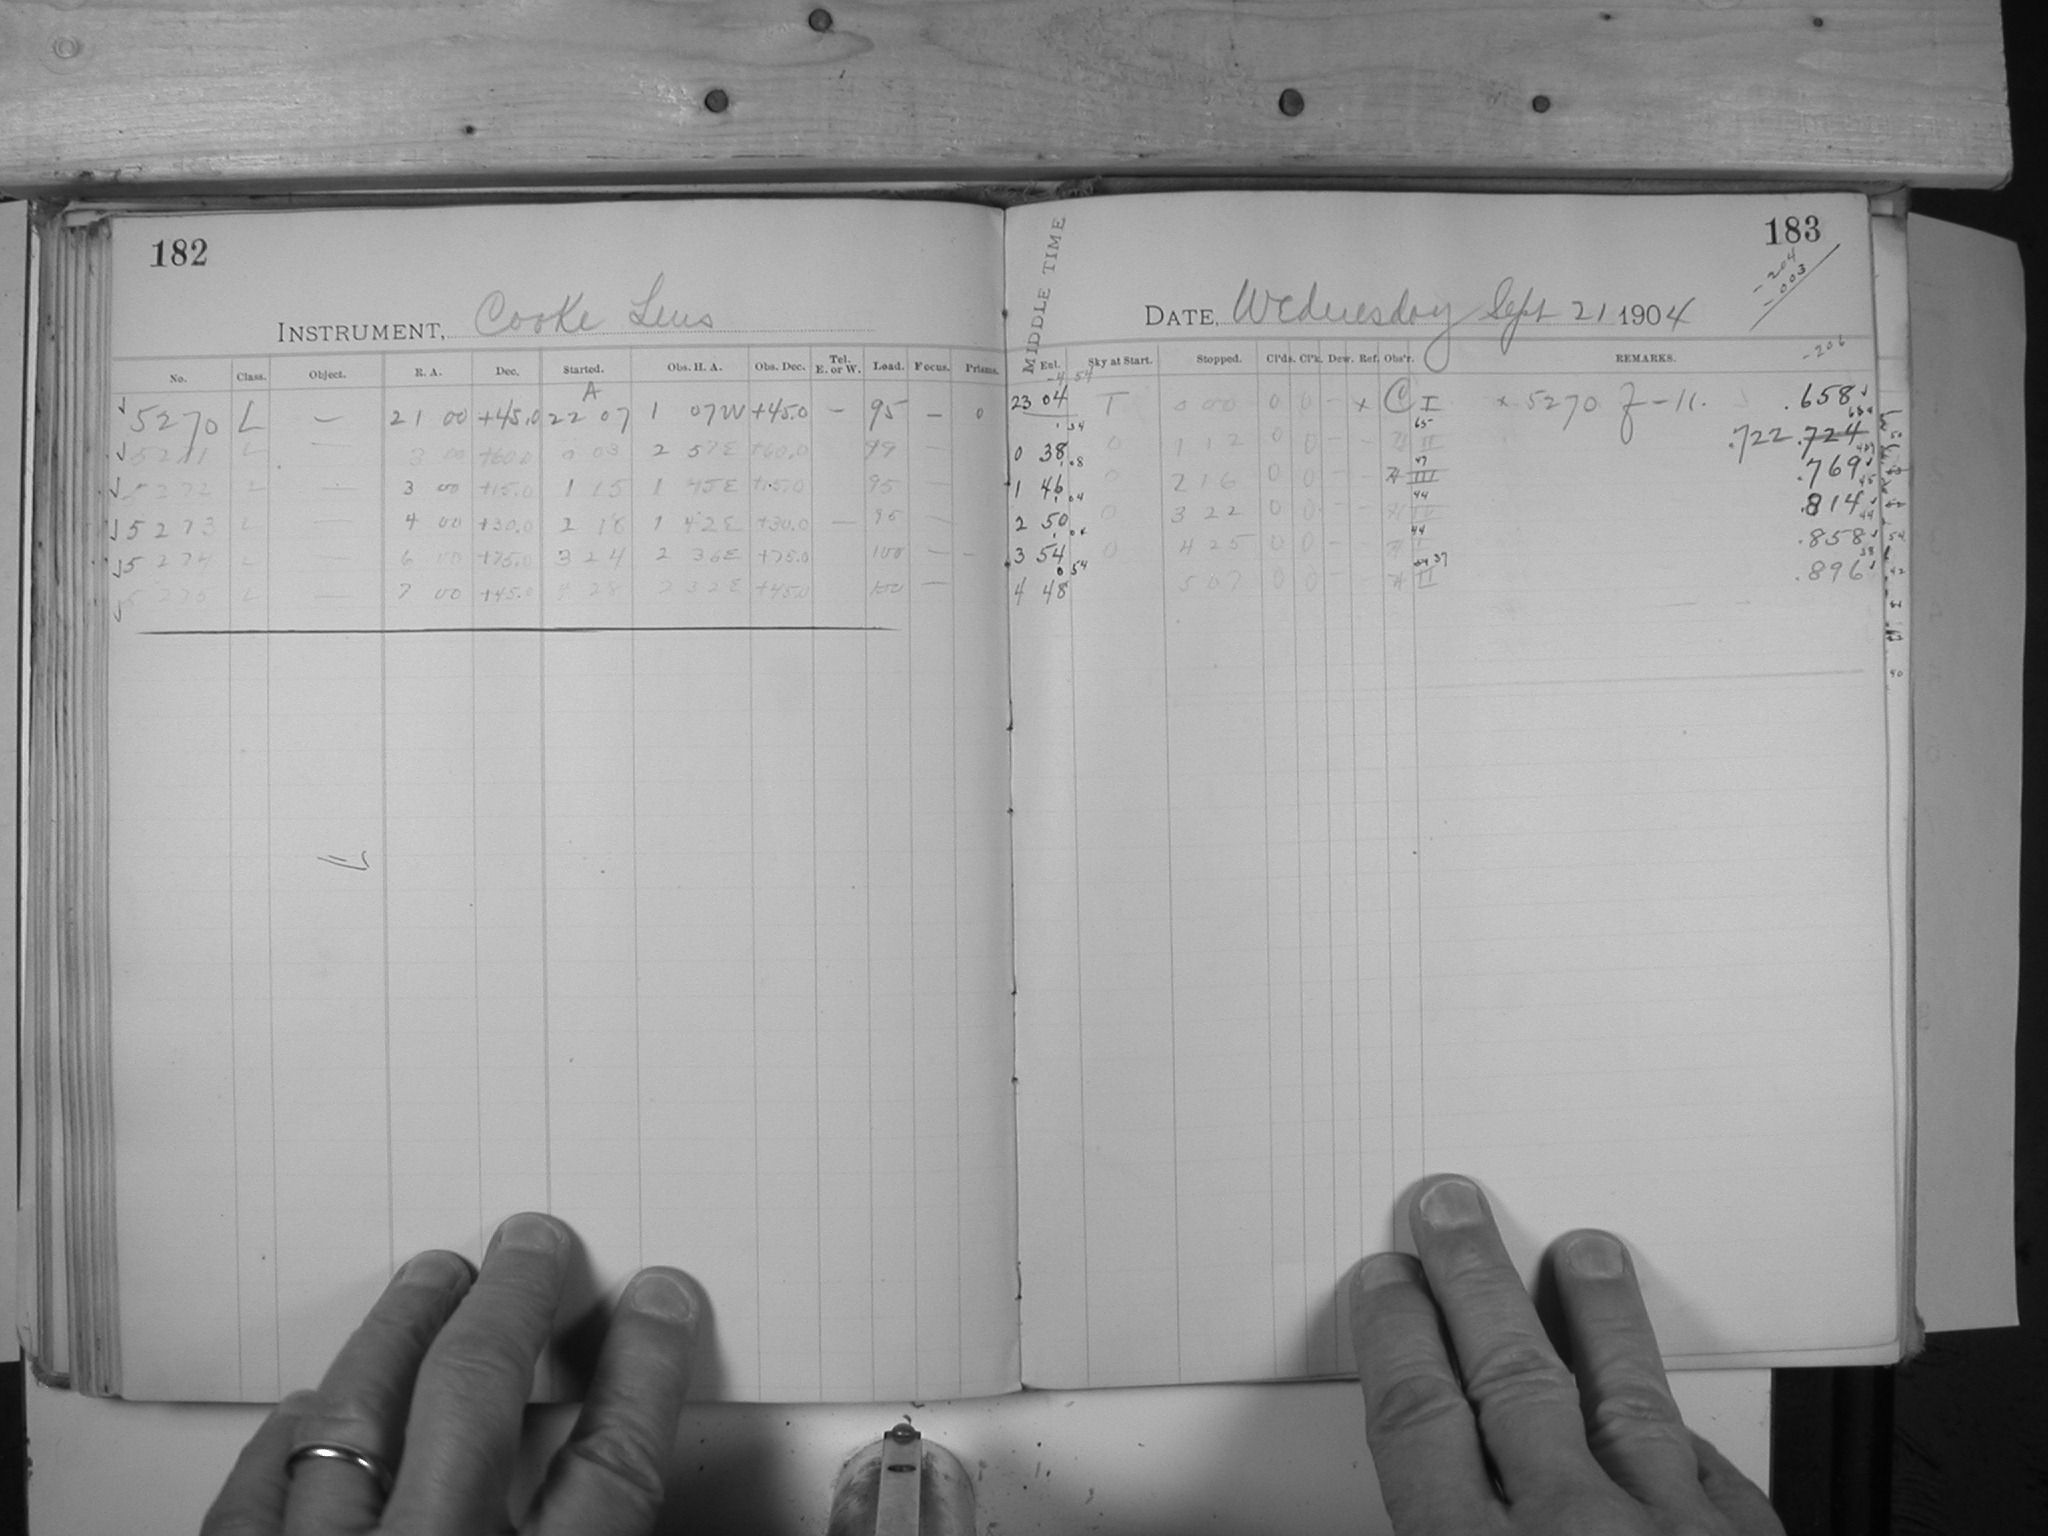 182
INSTRUMENT, Cooke Lens
No. Class. Object. R. A. Dec. Started. Obs. H. A. Obs. Dec. Tel. E. or W. Load. Focus. Prisms.
A
5270 L — 21 00 +45.0 22 07 1 07W +45.0 — 95 — 0
5271 L — 3 00 +60.0 0 03 2 57E +60.0 99 —
5272 L — 3 00 +15.0 1 15 1 45E +15.0 95 —
5273 L — 4 00 +30.0 2 18 1 42E +30.0 — 95 —
5274 L — 6 00 +75.0 3 24 2 36E +75.0 100 — —
5275 L — 7 00 +45.0 4 28 2 32E +45.0 100 —
183
-204
-003
MIDDLE TIME
DATE, Wednesday Sept 21 1904
-206
Enl. Sky at Start. Stopped. Cl'ds. Cl'k. Dew. Ref. Obs'r. REMARKS.
-4 54
23 04 T 0 00 0 0 — x C I x 5270 J-11. .658
0 38 0 1 12 0 0 — — II .722 .724
1 46 0 2 16 0 0 — — III .769
2 50 0 3 22 0 0 — — .814
3 54 0 4 25 0 0 — — I .858
4 48 5 07 0 0 — — II .896